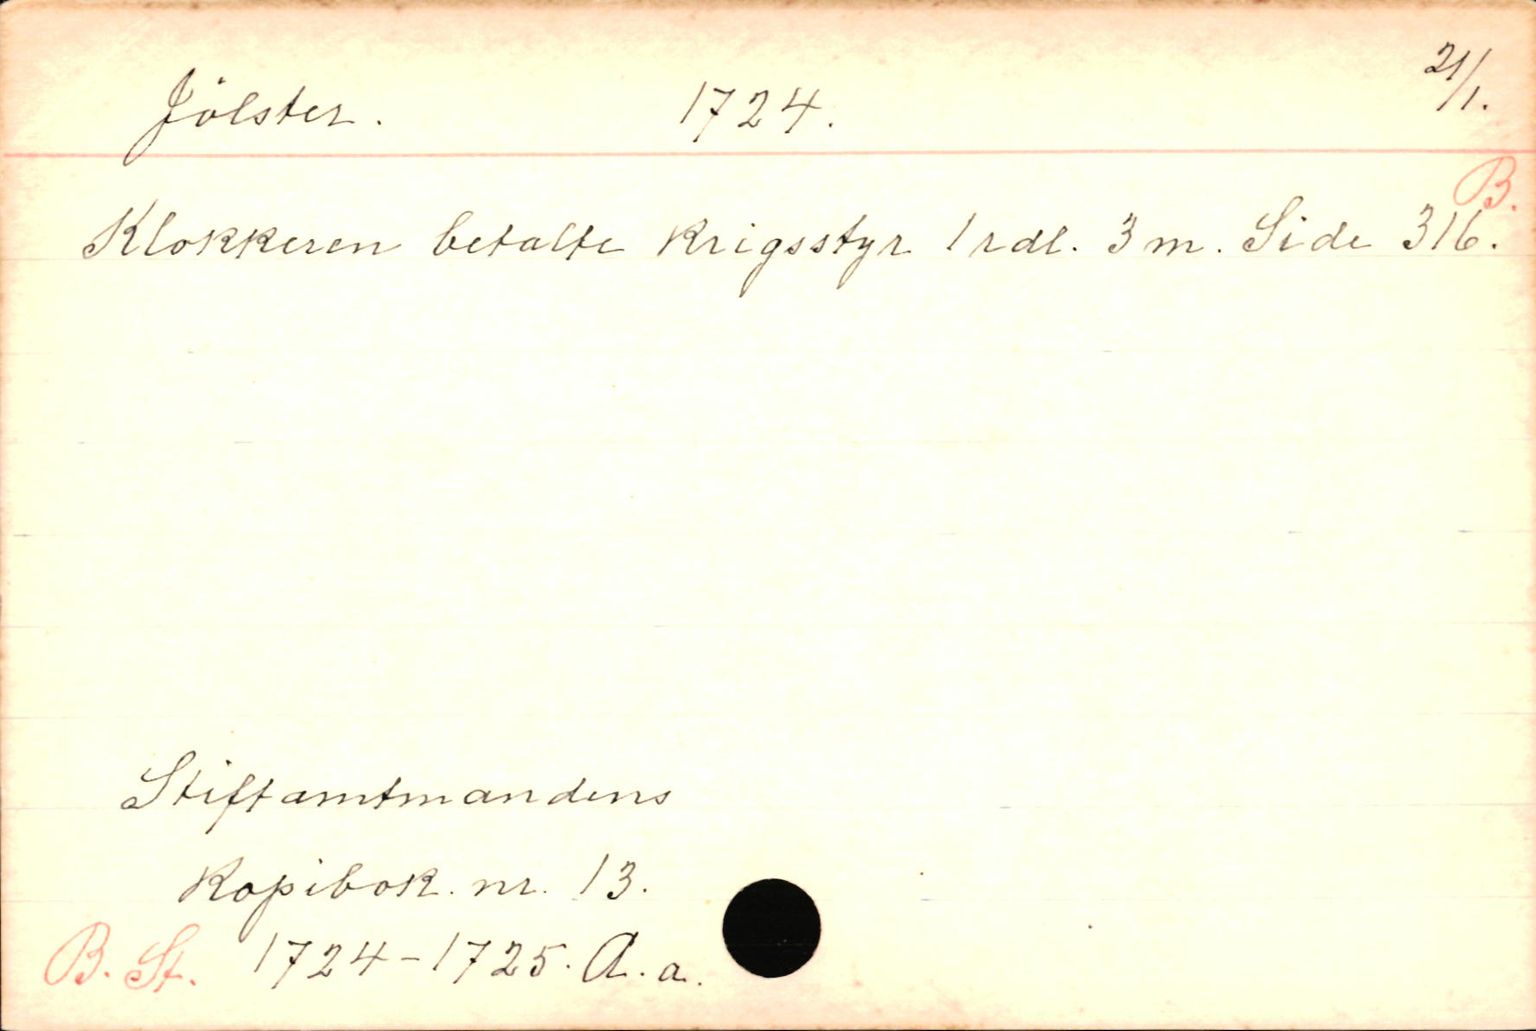 Jölster. 1724. 21/1.
B.
Klokkeren betalte krigsstyr 1 rdl. 3 m. Side 316.
Stiftamtmandens
Kopibok. nr. 13.
B. St. 1724-1725. A. a.